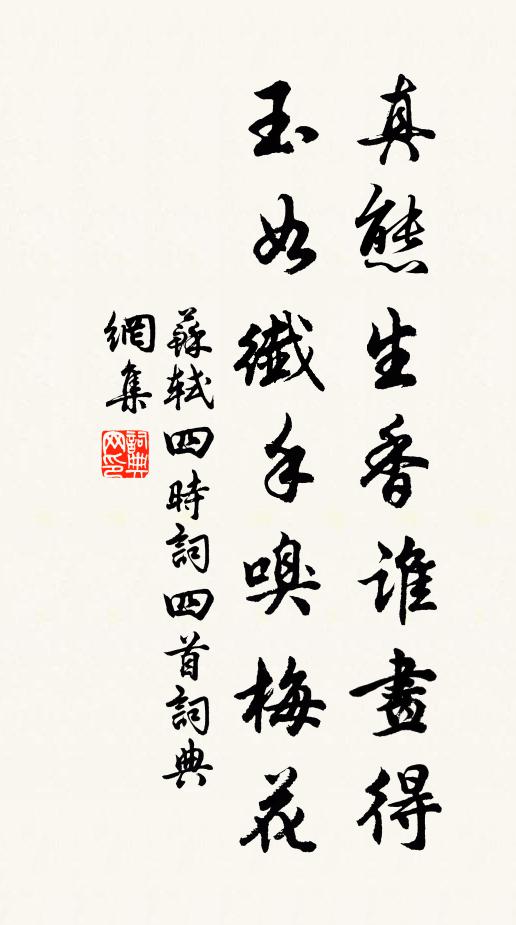 真態生香誰畫得
玉如纖手嗅梅花
蘇軾四時詞四首詞典
網集
詞典
网印